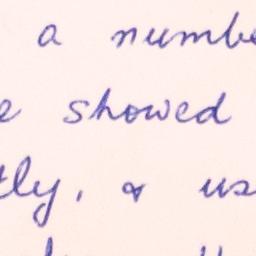 a numbe
e showed
tly, & us